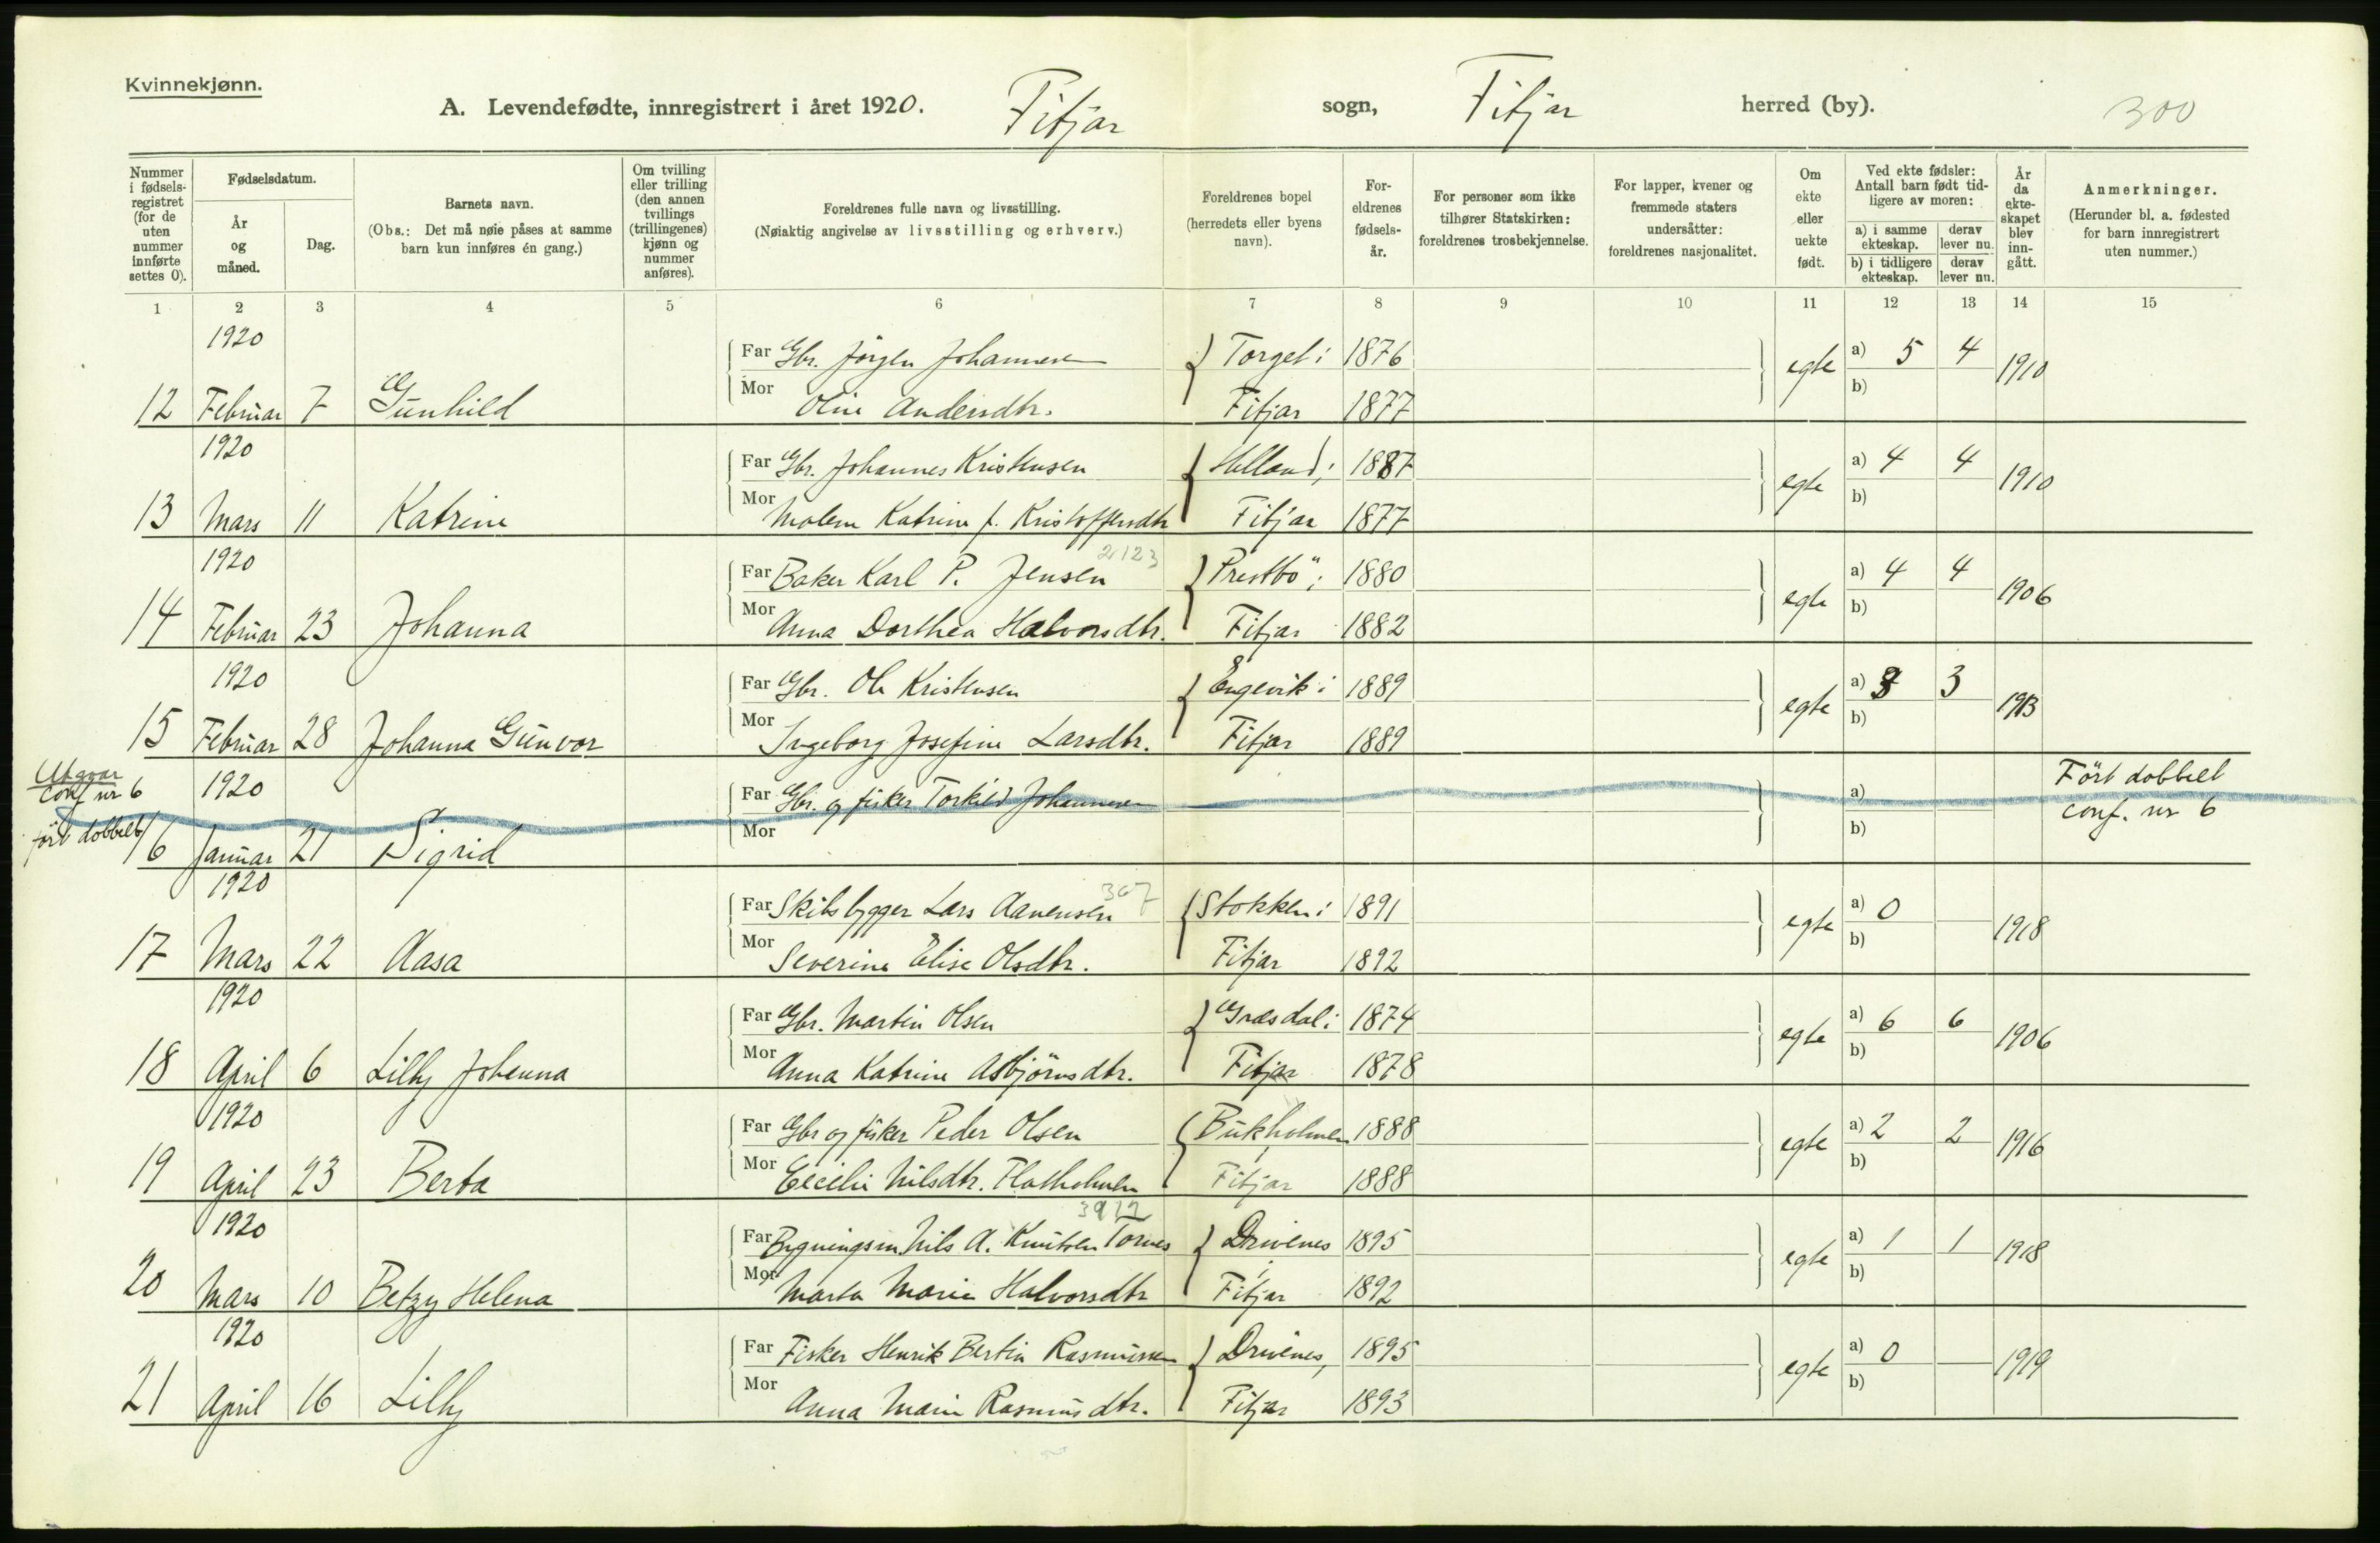 Kvinnekjønn.
A. Levendefødte, innregistrert i året 1920. Fitjar sogn, Fitjar herred (by). 300
Nummer i fødsels-registret (for de uten nummer innførte settes 0).
Fødselsdatum.
År og måned.
Dag.
Barnets navn.
(Obs.: Det må nøie påses at samme barn kun innføres én gang.)
Om tvilling eller trilling (den annen tvillings (trillingenes) kjønn og nummer anføres).
Foreldrenes fulle navn og livsstilling.
(Nøiaktig angivelse av livsstilling og erhverv.)
Foreldrenes bopel (herredets eller byens navn).
For-eldrenes fødsels-år.
For personer som ikke tilhører Statskirken: foreldrenes trosbekjennelse.
For lapper, kvener og fremmede staters undersåtter: foreldrenes nasjonalitet.
Om ekte eller uekte født.
Ved ekte fødsler: Antall barn født tid-ligere av moren:
a) i samme ekteskap. derav lever nu.
b) i tidligere ekteskap. derav lever nu.
År da ekte-skapet blev inn-gått.
Anmerkninger.
(Herunder bl. a. fødested for barn innregistrert uten nummer.)
1 2 3 4 5 6 7 8 9 10 11 12 13 14 15
1920 Far Gbr. Jörgen Johannesen Torget i 1876 egte a) 5 4 1910
12 Februar 7 Gunhild Mor Oline Andersdtr. Fitjar 1877 b)
1920 Far Gbr. Johannes Kristensen Helland i 1887 egte a) 4 4 1910
13 Mars 11 Katrine Mor Malene Katrine f. Kristoffersdtr Fitjar 1877 b)
2123
1920 Far Baker Karl P. Jensen Prestbö i 1880 egte a) 4 4 1906
14 Februar 23 Johanna Mor Anna Dorthea Halvorsdtr. Fitjar 1882 b)
1920 Far Gbr. Ole Kristensen Engevik i 1889 egte a) 3 3 1913
15 Februar 28 Johanna Gunvor Mor Ingeborg Josefine Larsdtr. Fitjar 1889 b)
Utgaar conf nr 6
ført dobbelt
1920 Far Gbr. og fisker Torkild Johannesen a) Ført dobbelt
16 Januar 21 Sigrid Mor b) conf. nr 6
367
1920 Far Skibsbygger Lars Aanensen Stokken i 1891 egte a) 0 1918
17 Mars 22 Aasa Mor Severine Elise Olsdtr. Fitjar 1892 b)
1920 Far Gbr. Martin Olsen Græsdal i 1874 egte a) 6 6 1906
18 April 6 Lilly Johanna Mor Anna Katrine Asbjörnsdtr. Fitjar 1878 b)
1920 Far Gbr og fisker Peder Olsen Bukholmen 1888 egte a) 2 2 1916
19 April 23 Berta Mor Cecilie Nilsdtr. Flatholmen Fitjar 1888 b)
1920 Far Bygningsm. Nils A. Knutsen Tornes Drivenes 1895 egte a) 1 1 1918
20 Mars 10 Betzy Helena Mor Marta Marie Halvorsdtr Fitjar 1892 b)
1920 Far Fisker Henrik Bertin Rasmussen Drivenes, 1895 egte a) 0 1919
21 April 16 Lilly Mor Anna Marie Rasmusdtr. Fitjar 1893 b)